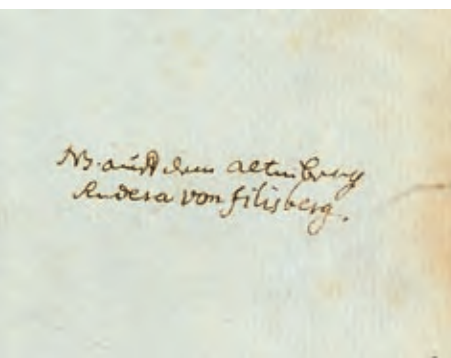 NB. auß dem altenberg
Andera von filisberg.